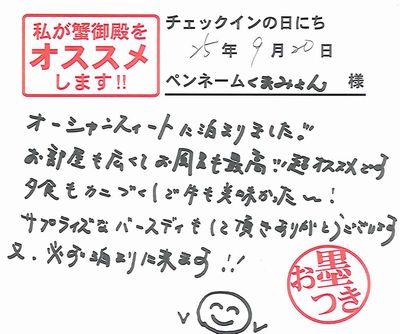 私が蟹御殿を
オススメ
します!!
チェックインの日にち
25年9月20日
ペンネームくまみょん 様
オーシャンスィートに泊まりました!!
お部屋も広くてお風呂も最高!!超オススメです
夕食もカニづくしで牛も美味かた〜!
サプライズなバースディもして頂きありがとうございます
又、必ず泊まりに来ます!!
お墨つき